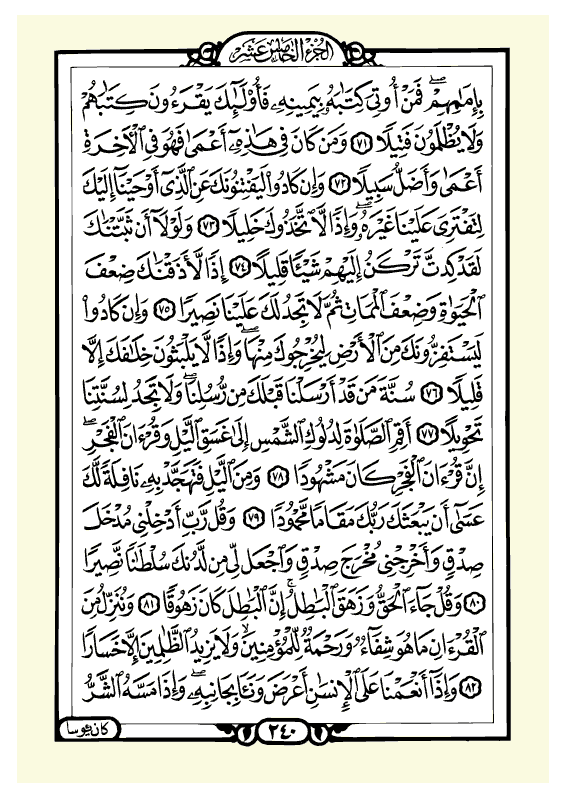 الجزء الخامس عشر
بِإِمَٰمِهِمْۖ فَمَنْ أُوتِىَ كِتَٰبَهُۥ بِيَمِينِهِۦ فَأُو۟لَٰٓئِكَ يَقْرَءُونَ كِتَٰبَهُمْ
وَلَا يُظْلَمُونَ فَتِيلًا ٧١ وَمَن كَانَ فِى هَٰذِهِۦٓ أَعْمَىٰ فَهُوَ فِى ٱلْءَاخِرَةِ
أَعْمَىٰ وَأَضَلُّ سَبِيلًا ٧٢ وَإِن كَادُوا۟ لَيَفْتِنُونَكَ عَنِ ٱلَّذِىٓ أَوْحَيْنَآ إِلَيْكَ
لِتَفْتَرِىَ عَلَيْنَا غَيْرَهُۥۖ وَإِذًا لَّٱتَّخَذُوكَ خَلِيلًا ٧٣ وَلَوْلَآ أَن ثَبَّتْنَٰكَ
لَقَدْ كِدتَّ تَرْكَنُ إِلَيْهِمْ شَيْـًٔا قَلِيلًا ٧٤ إِذًا لَّأَذَقْنَٰكَ ضِعْفَ
ٱلْحَيَوٰةِ وَضِعْفَ ٱلْمَمَاتِ ثُمَّ لَا تَجِدُ لَكَ عَلَيْنَا نَصِيرًا ٧٥ وَإِن كَادُوا۟
لَيَسْتَفِزُّونَكَ مِنَ ٱلْأَرْضِ لِيُخْرِجُوكَ مِنْهَاۖ وَإِذًا لَّا يَلْبَثُونَ خِلَٰفَكَ إِلَّا
قَلِيلًا ٧٦ سُنَّةَ مَن قَدْ أَرْسَلْنَا قَبْلَكَ مِن رُّسُلِنَاۖ وَلَا تَجِدُ لِسُنَّتِنَا
تَحْوِيلًا ٧٧ أَقِمِ ٱلصَّلَوٰةَ لِدُلُوكِ ٱلشَّمْسِ إِلَىٰ غَسَقِ ٱلَّيْلِ وَقُرْءَانَ ٱلْفَجْرِۖ
إِنَّ قُرْءَانَ ٱلْفَجْرِ كَانَ مَشْهُودًا ٧٨ وَمِنَ ٱلَّيْلِ فَتَهَجَّدْ بِهِۦ نَافِلَةً لَّكَ
عَسَىٰٓ أَن يَبْعَثَكَ رَبُّكَ مَقَامًا مَّحْمُودًا ٧٩ وَقُل رَّبِّ أَدْخِلْنِى مُدْخَلَ
صِدْقٍ وَأَخْرِجْنِى مُخْرَجَ صِدْقٍ وَٱجْعَل لِّى مِن لَّدُنكَ سُلْطَٰنًا نَّصِيرًا
٨٠ وَقُلْ جَآءَ ٱلْحَقُّ وَزَهَقَ ٱلْبَٰطِلُۚ إِنَّ ٱلْبَٰطِلَ كَانَ زَهُوقًا ٨١ وَنُنَزِّلُ مِنَ
ٱلْقُرْءَانِ مَا هُوَ شِفَآءٌ وَرَحْمَةٌ لِّلْمُؤْمِنِينَۙ وَلَا يَزِيدُ ٱلظَّٰلِمِينَ إِلَّا خَسَارًا
٨٢ وَإِذَآ أَنْعَمْنَا عَلَى ٱلْإِنسَٰنِ أَعْرَضَ وَنَـَٔا بِجَانِبِهِۦۖ وَإِذَا مَسَّهُ ٱلشَّرُّ
كان يوسا
٢٤٠